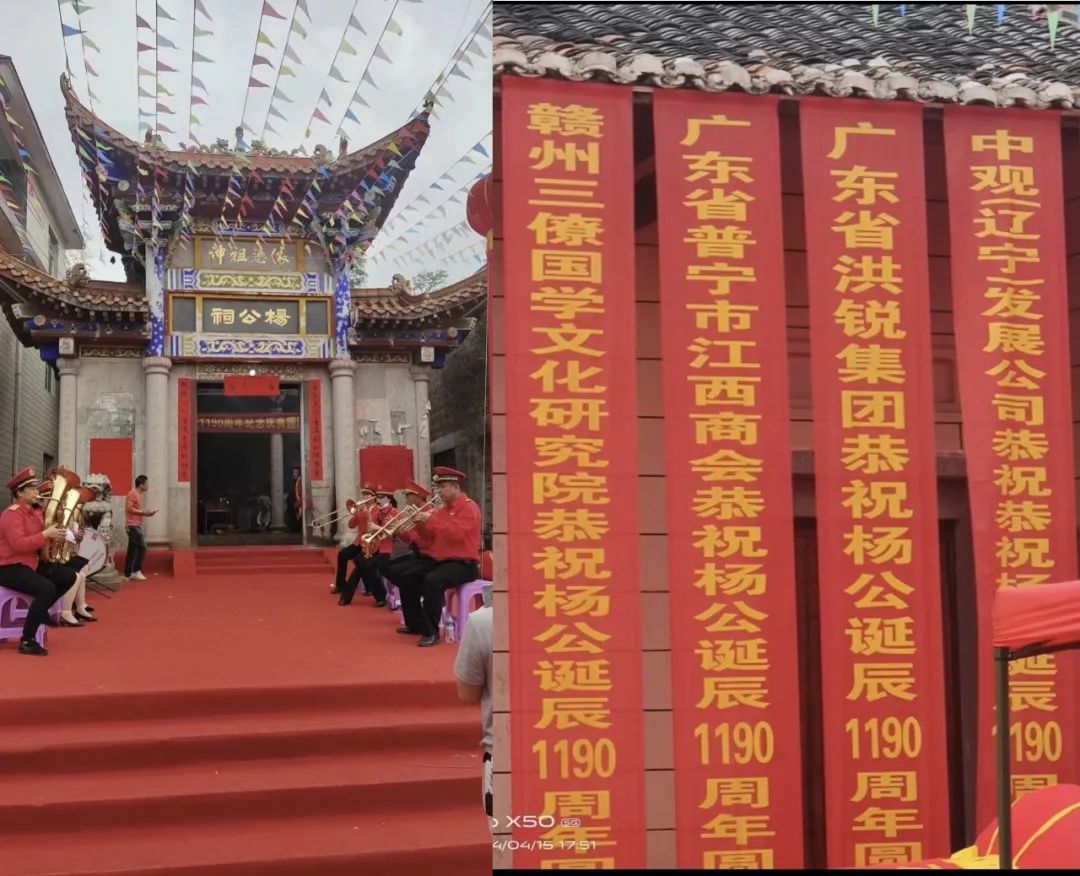 楊公祠
1190周年纪念庆典暨
赣州三僚国学文化研究院恭祝杨公诞辰1190周年圆
广东省普宁市江西商会恭祝杨公诞辰1190周年圆
广东省洪锐集团恭祝杨公诞辰1190周年圆
中观(辽宁)发展公司恭祝恭祝杨
诞
190
周年
X50 5G
4/04/15 17:51